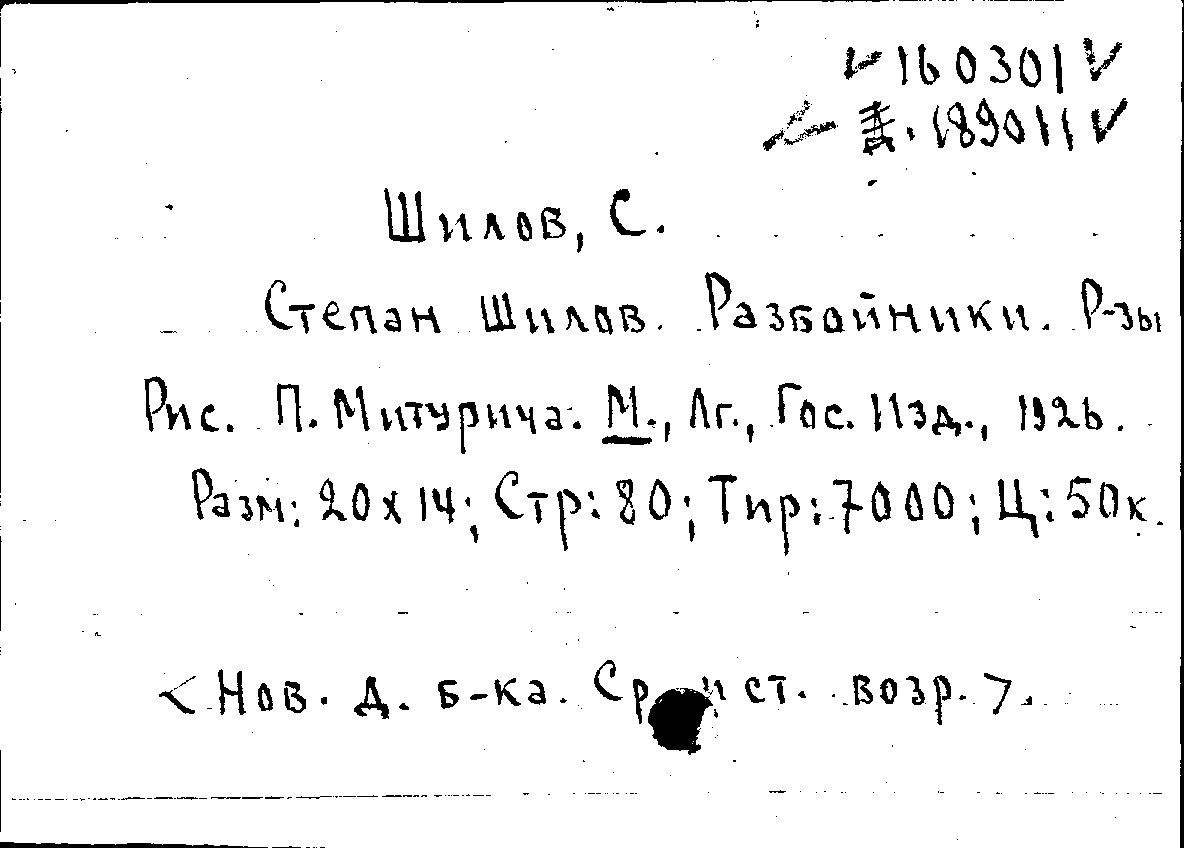 160301
189011
Шилов, С.
Степан Шилов. Разбойники. Р-зы
Рис. П. Митурича. М., Лг., Гос. Изд., 1926.
Разм: 20 x 14; Стр: 80; Тир: 7000; Ц: 50 к.
<Нов. д. б-ка. Ср и ст. возр.>.